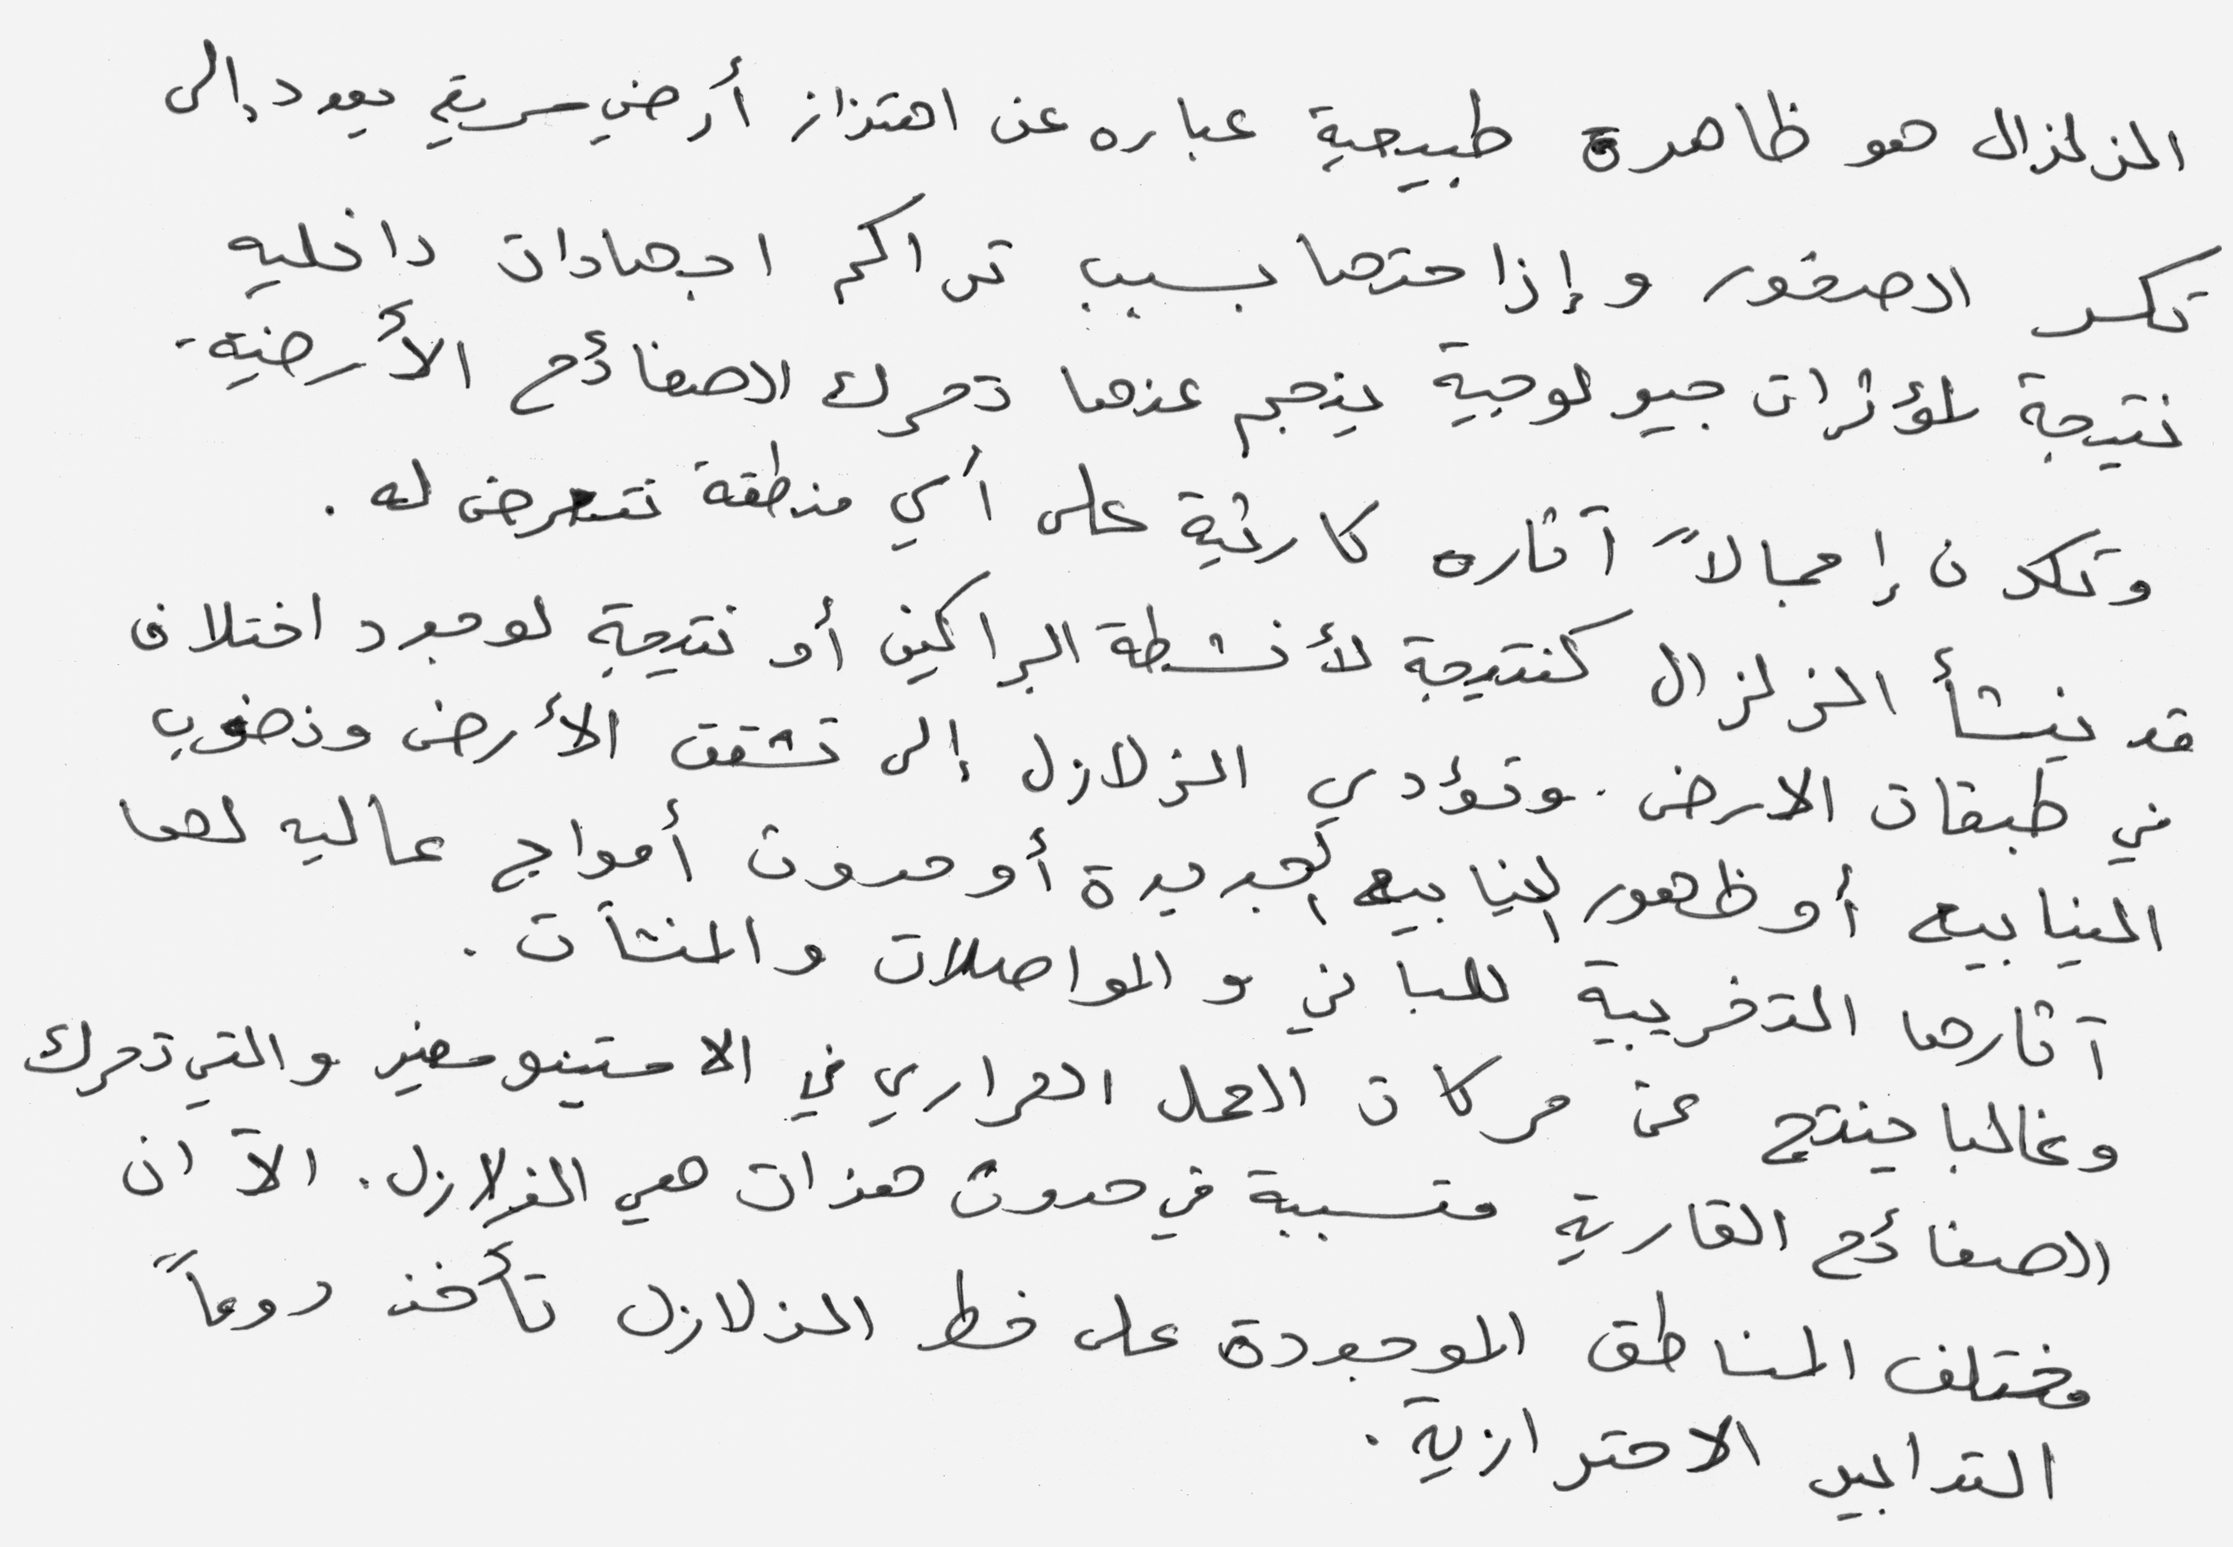 الزلزال هو ظاهرة طبيعية عباره عن اهتزاز أرضي سريع يعود إلى
تكسر الصخور وإزاحتها بسبب تراكم اجهادات داخليه
نتيجة لمؤثرات جيولوجية ينجم عنها تحرك الصفائح الأرضية.
وتكون إجمالاً آثاره كارثية على أي منطقة تتعرض له.
قد ينشأ الزلزال كنتيجة لأنشطة البراكين أو نتيجة لوجود اختلاف
في طبقات الارض. وتؤدي الزلازل إلى تشقق الأرض ونضوب
الينابيع أو ظهور الينابيع الجديدة أو حدوث أمواج عاليه لها
آثارها التخريبية للمباني والمواصلات والمنشآت.
وغالبا ينتج عن حركات الحمل الحراري في الاستينوسفير والتي تحرك
الصفائح القارية متسببة في حدوث هزات هي الزلازل. الآ ان
مختلف المناطق الموجودة على خط الزلازل تأخذ دوماً
التدابير الاحترازية.